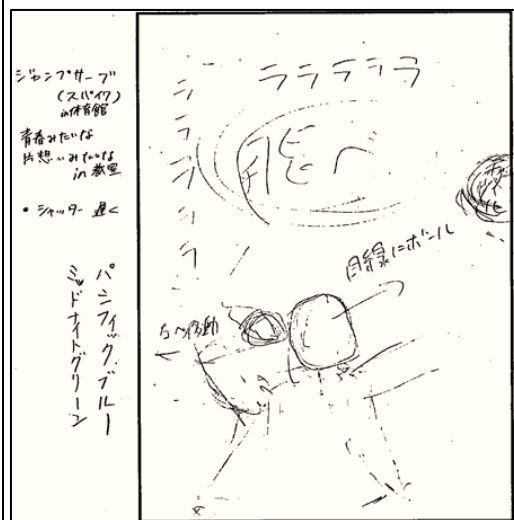 ジャンプサーブ
(スパイク)
in体育館
青春みたいな
片想いみたいな
in 教室
• シャッター 遅く
パシフィックブルー
ミッドナイトグリーン
ラララララ
ラララララ
飛べ
目線にボール
左へ移動